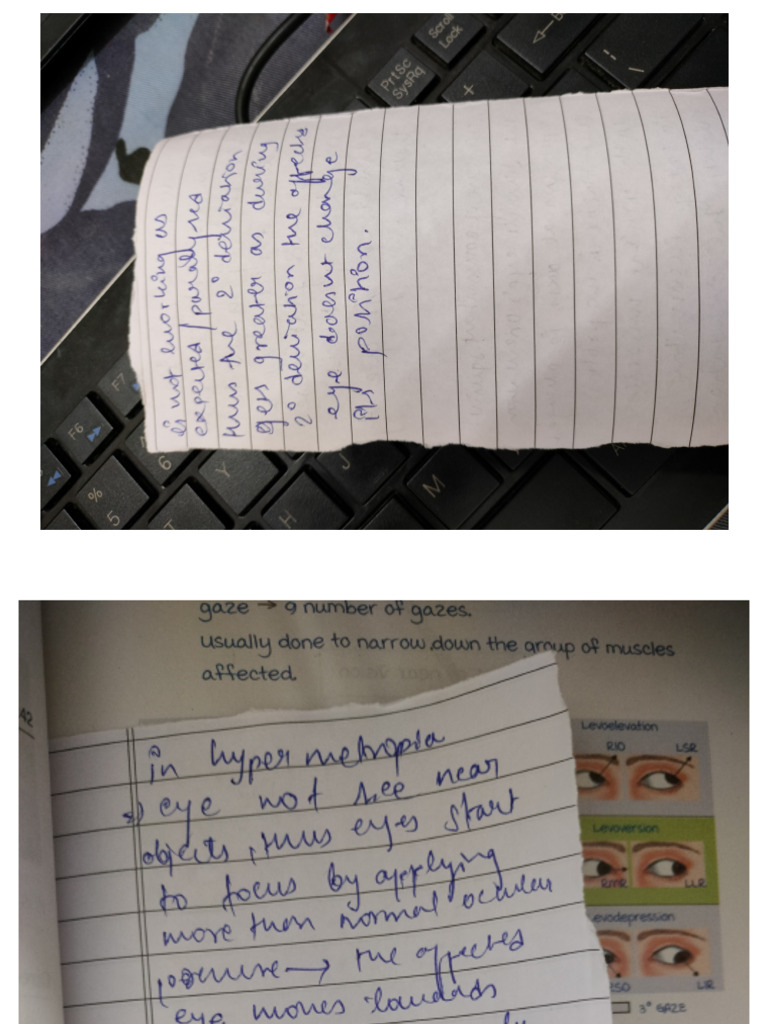 is not working as
expected / paralysed
thus the 2° deviation
gets greater as during
2° deviation the affected
eye doesnt change
its position.
Scroll
Lock
PrtSc
SysRq
+
F7
F6
6
%
5
T
Y
H
J
M
gaze → 9 number of gazes.
usually done to narrow down the group of muscles
affected.
42
in hypermetropia
eye not see near
objects, thus eyes start
to focus by applying
more than normal ocular
→ the affected
eye moves towards
Levoelevation
RIO LSR
Levoversion
RMR LLR
evodepression
RSO LIR
3° GAZE